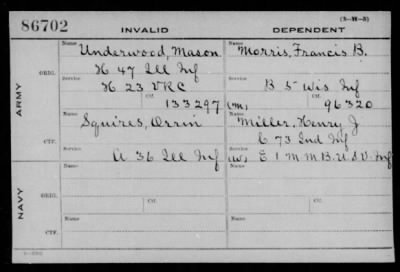 86702 INVALID DEPENDENT (3-M-3)
Name Underwood, Mason Name Morris, Francis B.
ARMY ORIG. H 47 Ill Inf
Service H 23 VRC Service B 5 Wis Inf
Ctf. 133297 (m) Ctf. 96320
Name Squires, Orrin Name Miller, Henry J
CTF. C 73 Ind Inf
Service A 36 Ill Inf Service (W) E 1 M M B. U S V. Inf
NAVY ORIG. Name Name
Service Ctf. Service Ctf.
Name Name
CTF.
Service Service